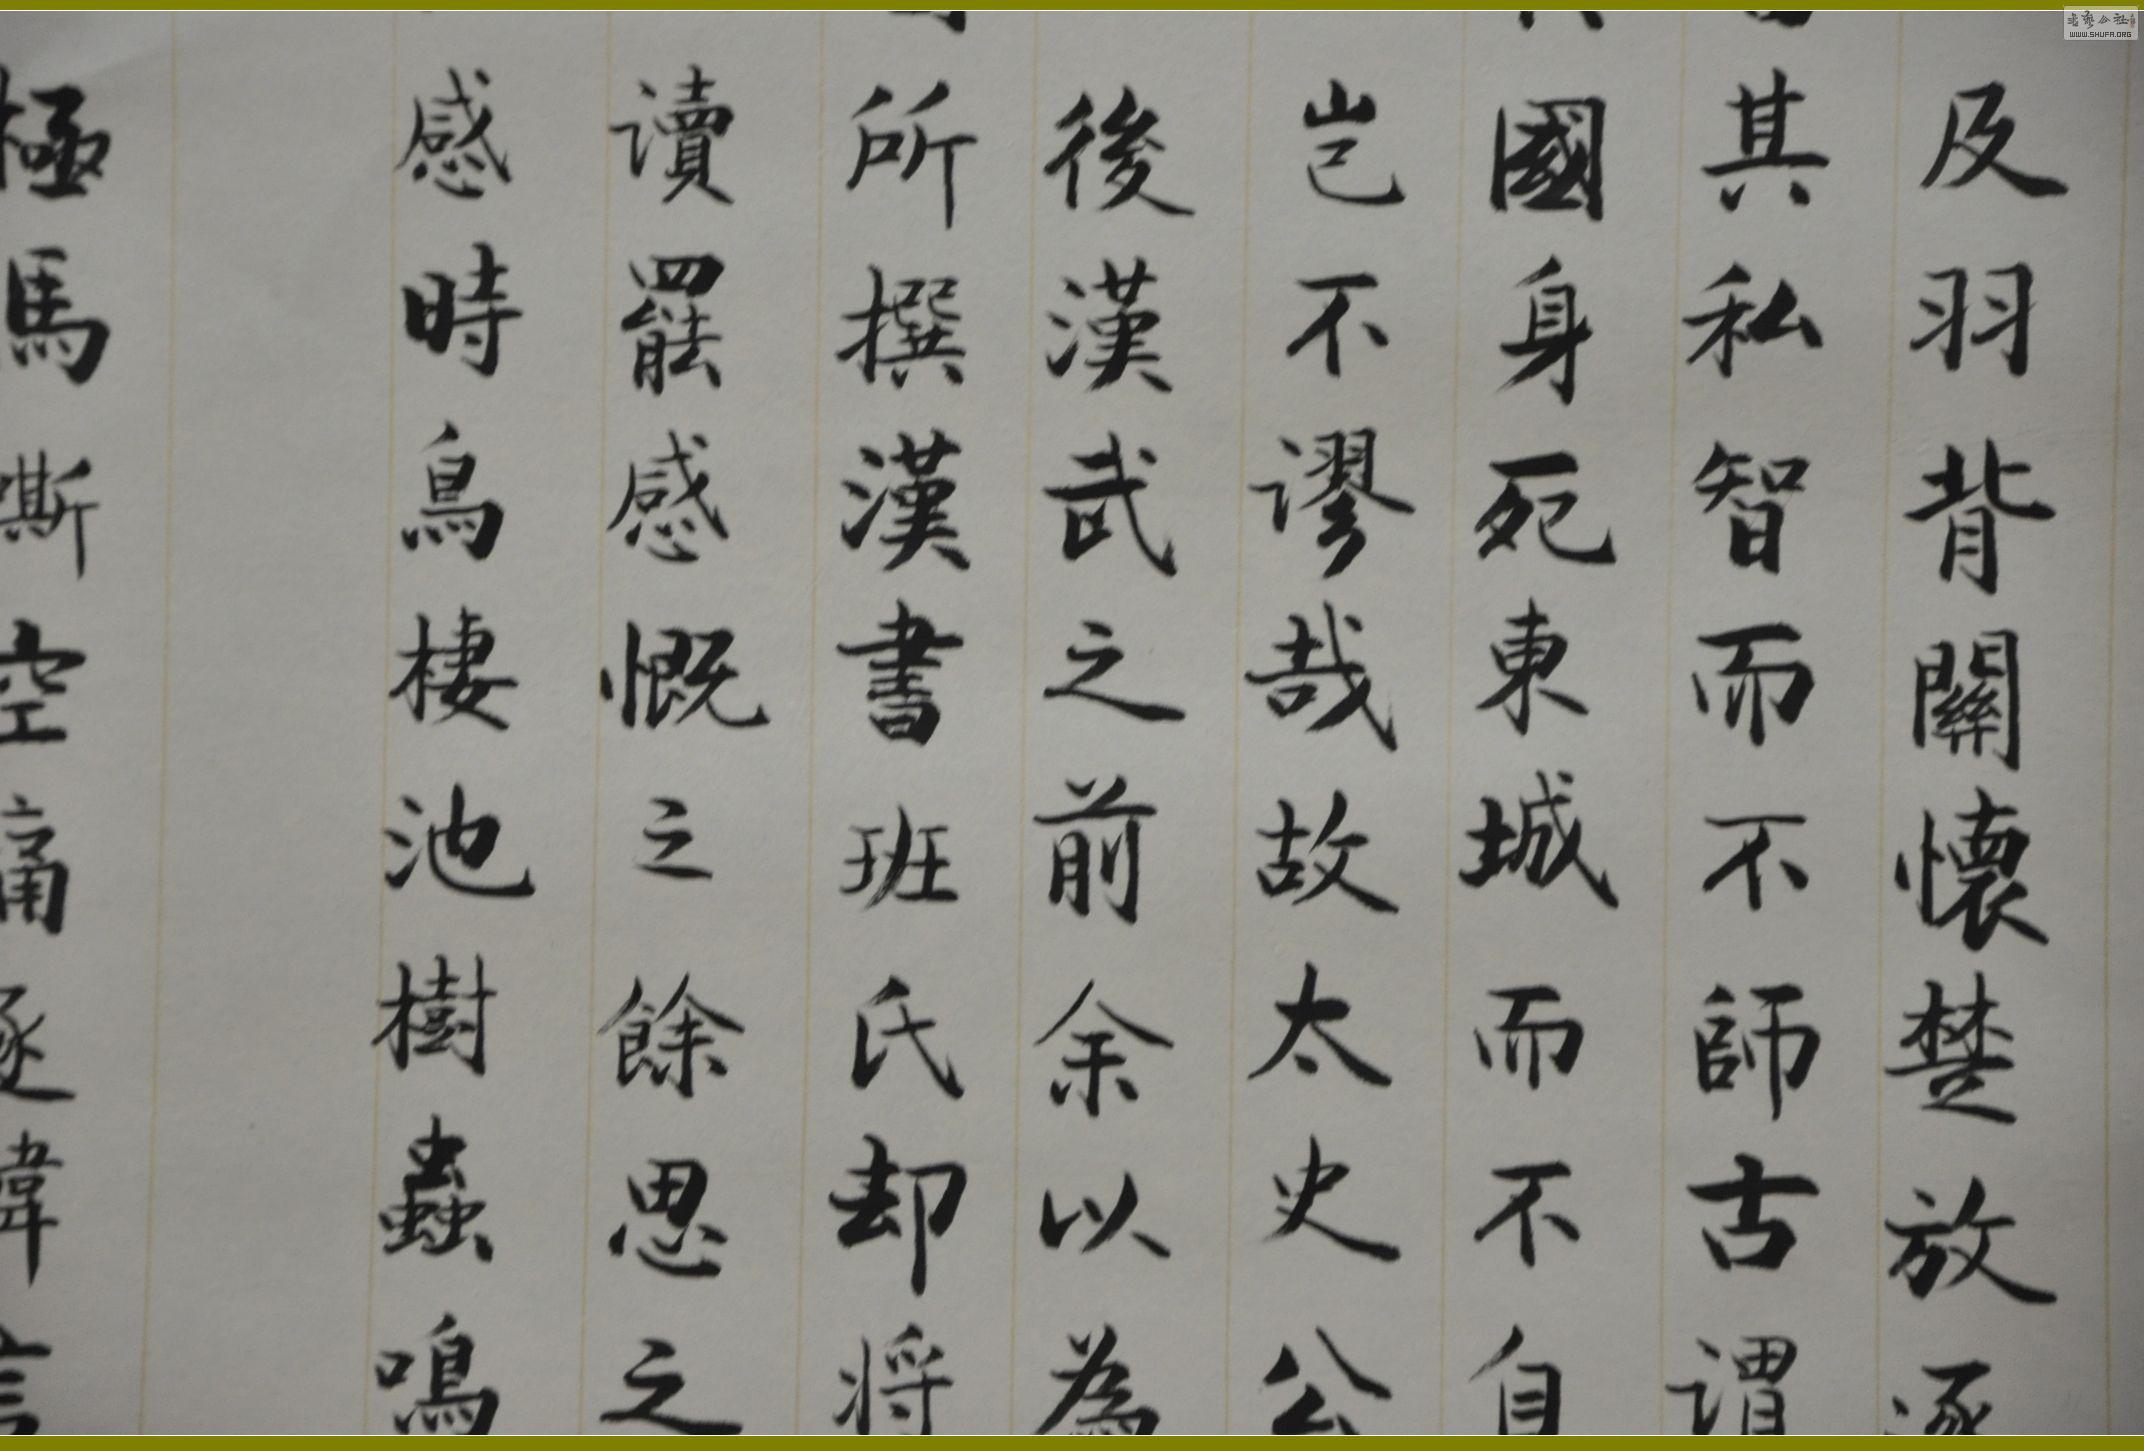 及羽背關懷楚放逐
其私智而不師古謂
國身死東城而不自
豈不謬哉故太史公
後漢武之前余以為
所撰漢書班氏却将
讀罷感慨之餘思之
感時鳥棲池樹蟲鳴
極馬嘶空痛逐
WWW.SHUFA.ORG